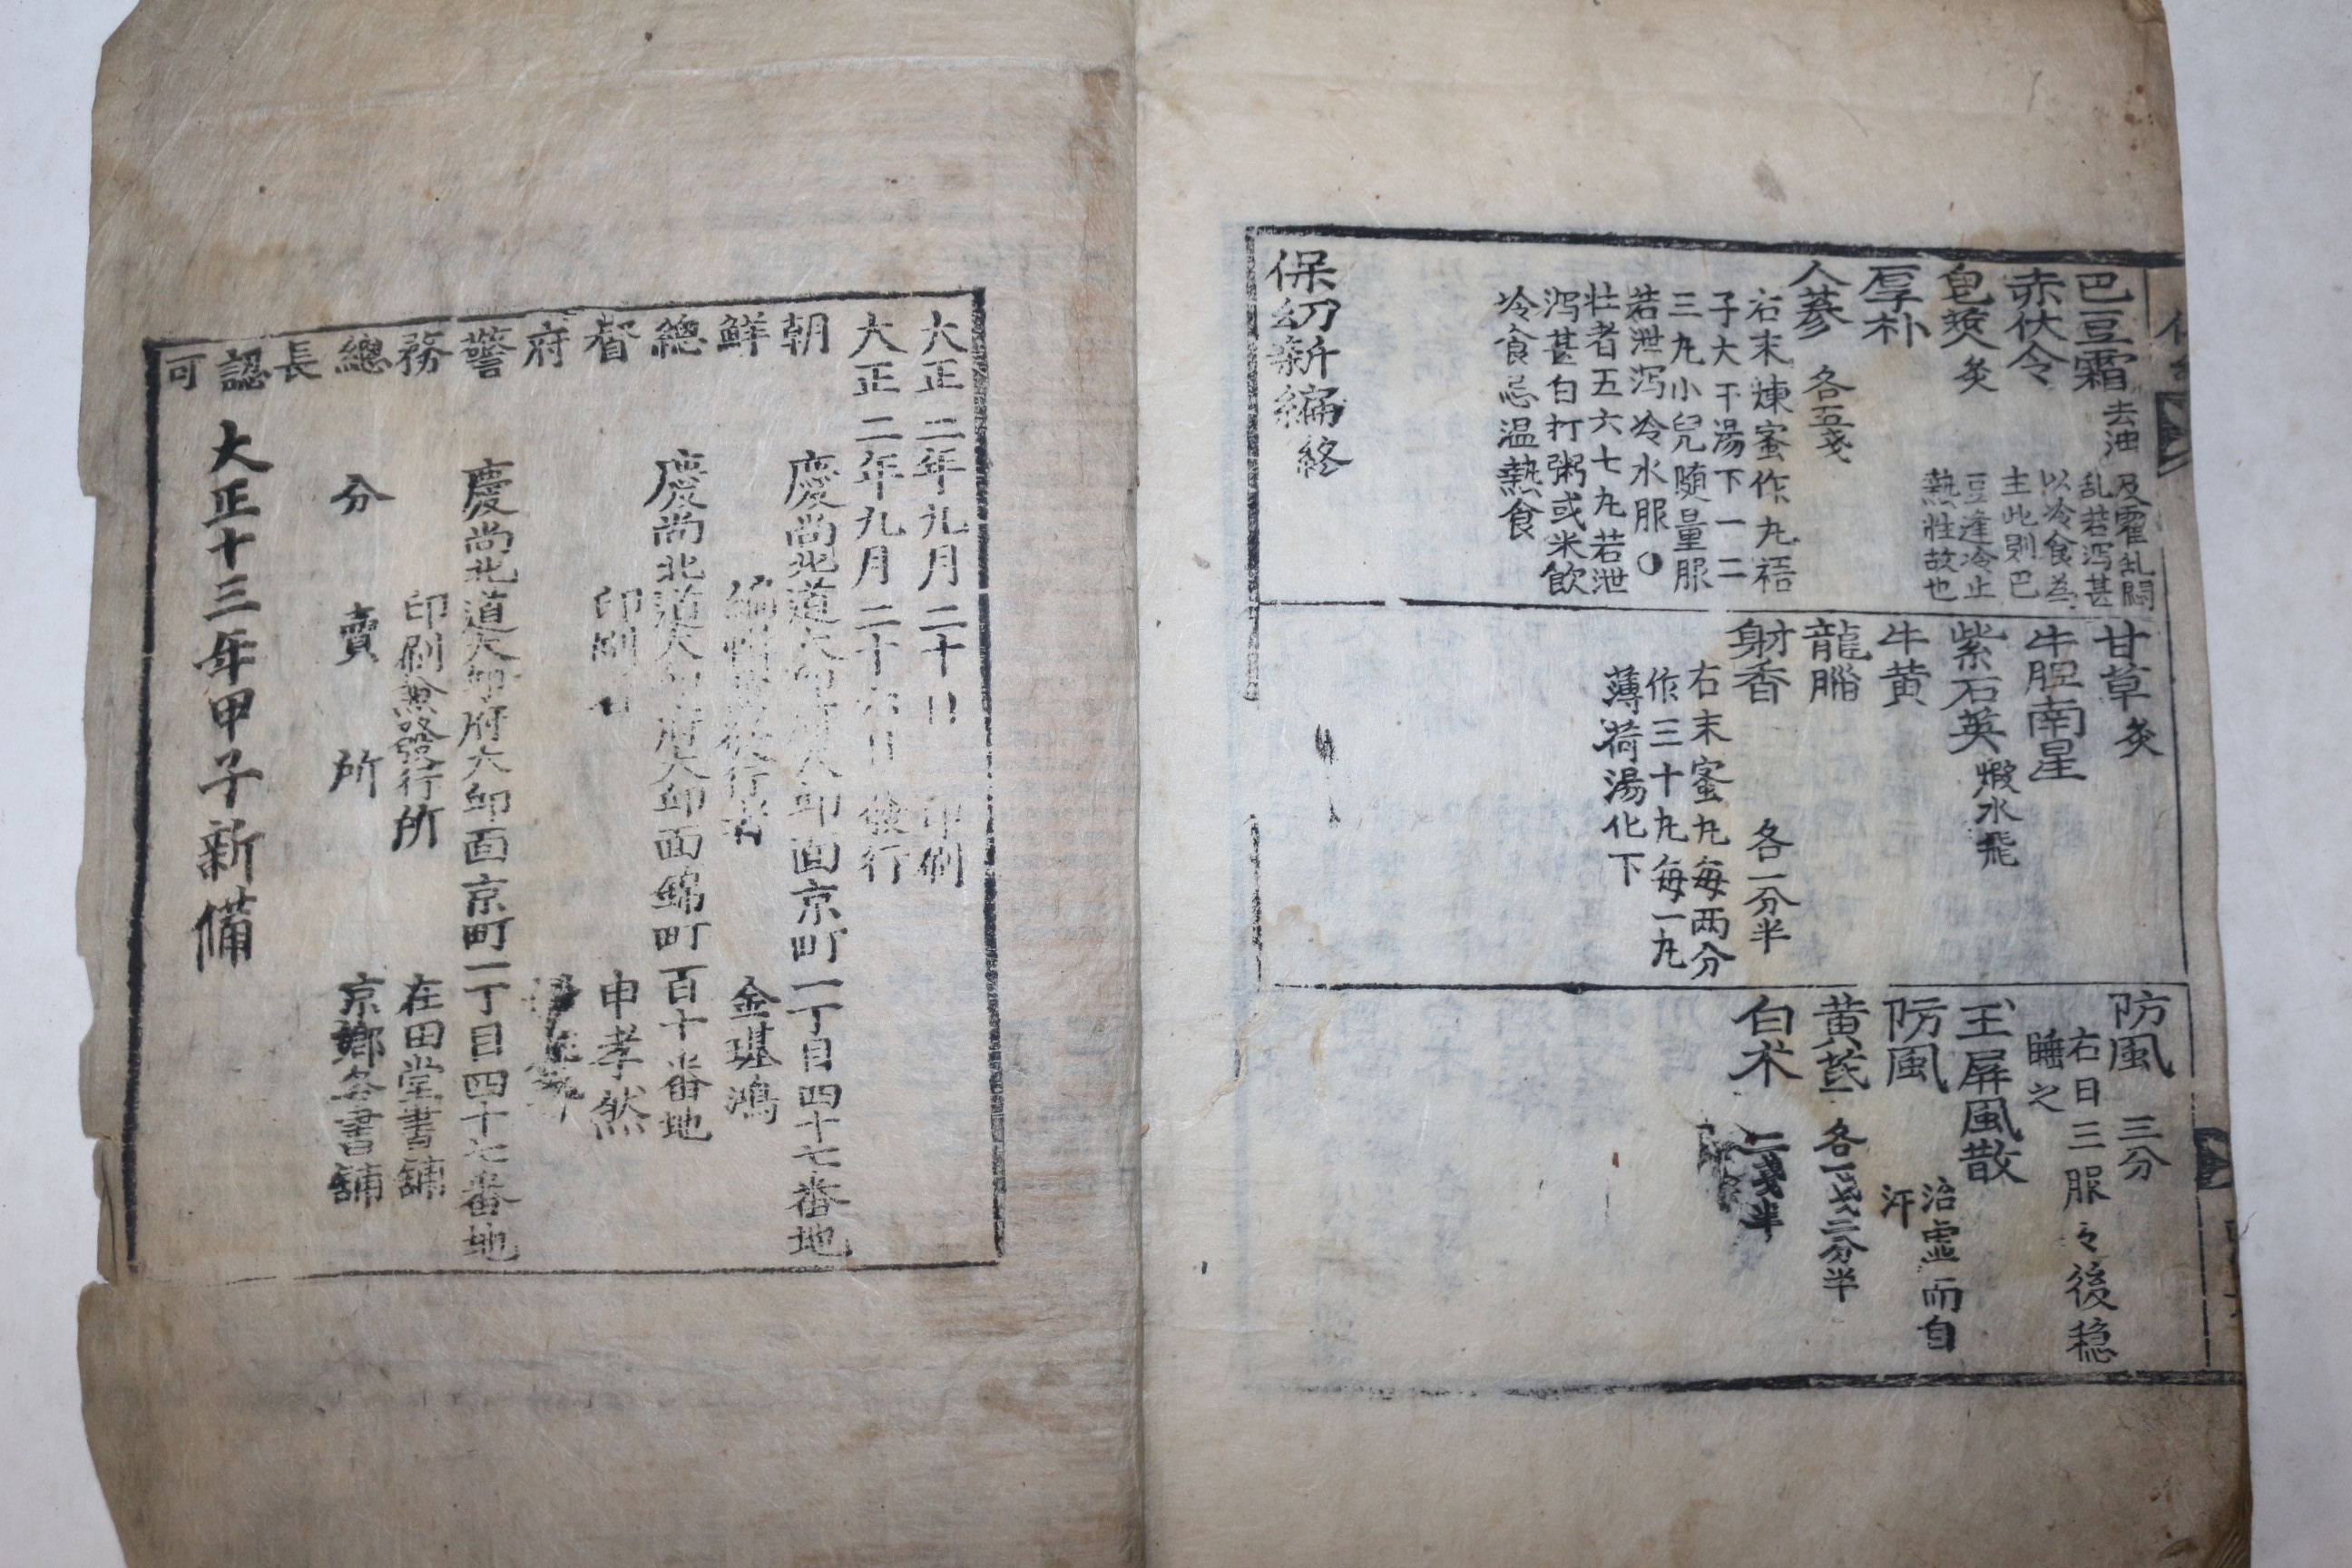 巴豆霜 去油
及霍乱悶
乱若泻甚
以冷食為
主此則巴
豆逢冷止
熱性故也
赤伏令
皂莢 炙
厚朴
人蔘 各五戔
右末煉蜜作九梧
子大干湯下一二
三九小兒随量服
若泄泻冷水服○
壮者五六七九若泄
泻甚白打粥或米飲
冷食忌温熱食
保幼新編終
甘草 炙
牛胆南星
紫石英 煆水飛
牛黄
龍腦
射香 各一分半
右末蜜九每两分
作三十九每一九
薄荷湯化下
防風 三分
右日三服々後穏
睡之
玉屏風散 治虚而自
汗
防風
黄芪 各一戔二分半
白朮 二戔半
大正二年九月二十日 印刷
大正二年九月二十 日 發行
朝鮮總督府警務總長認可
慶尚北道大邱府大邱面京町一丁目四十七番地
編輯兼發行者 金璂鴻
慶尚北道大邱府大邱面錦町百十番地
印刷者 申孝然
慶尚北道大邱府大邱面京町一丁目四十七番地
印刷兼發行所 在田堂書鋪
分賣所 京鄉各書鋪
大正十三年甲子新備